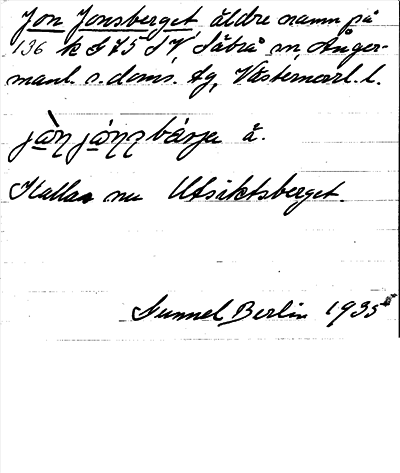 Jon Jonsberget äldre namn på
136 k S 75 S V Säbrå sn, Ånger-
manl. s. doms. tg, Västernorrl. l.
jòn jónsbárje å.
Kallas nu Utsiktsberget.
Gunnel Berlin 1935